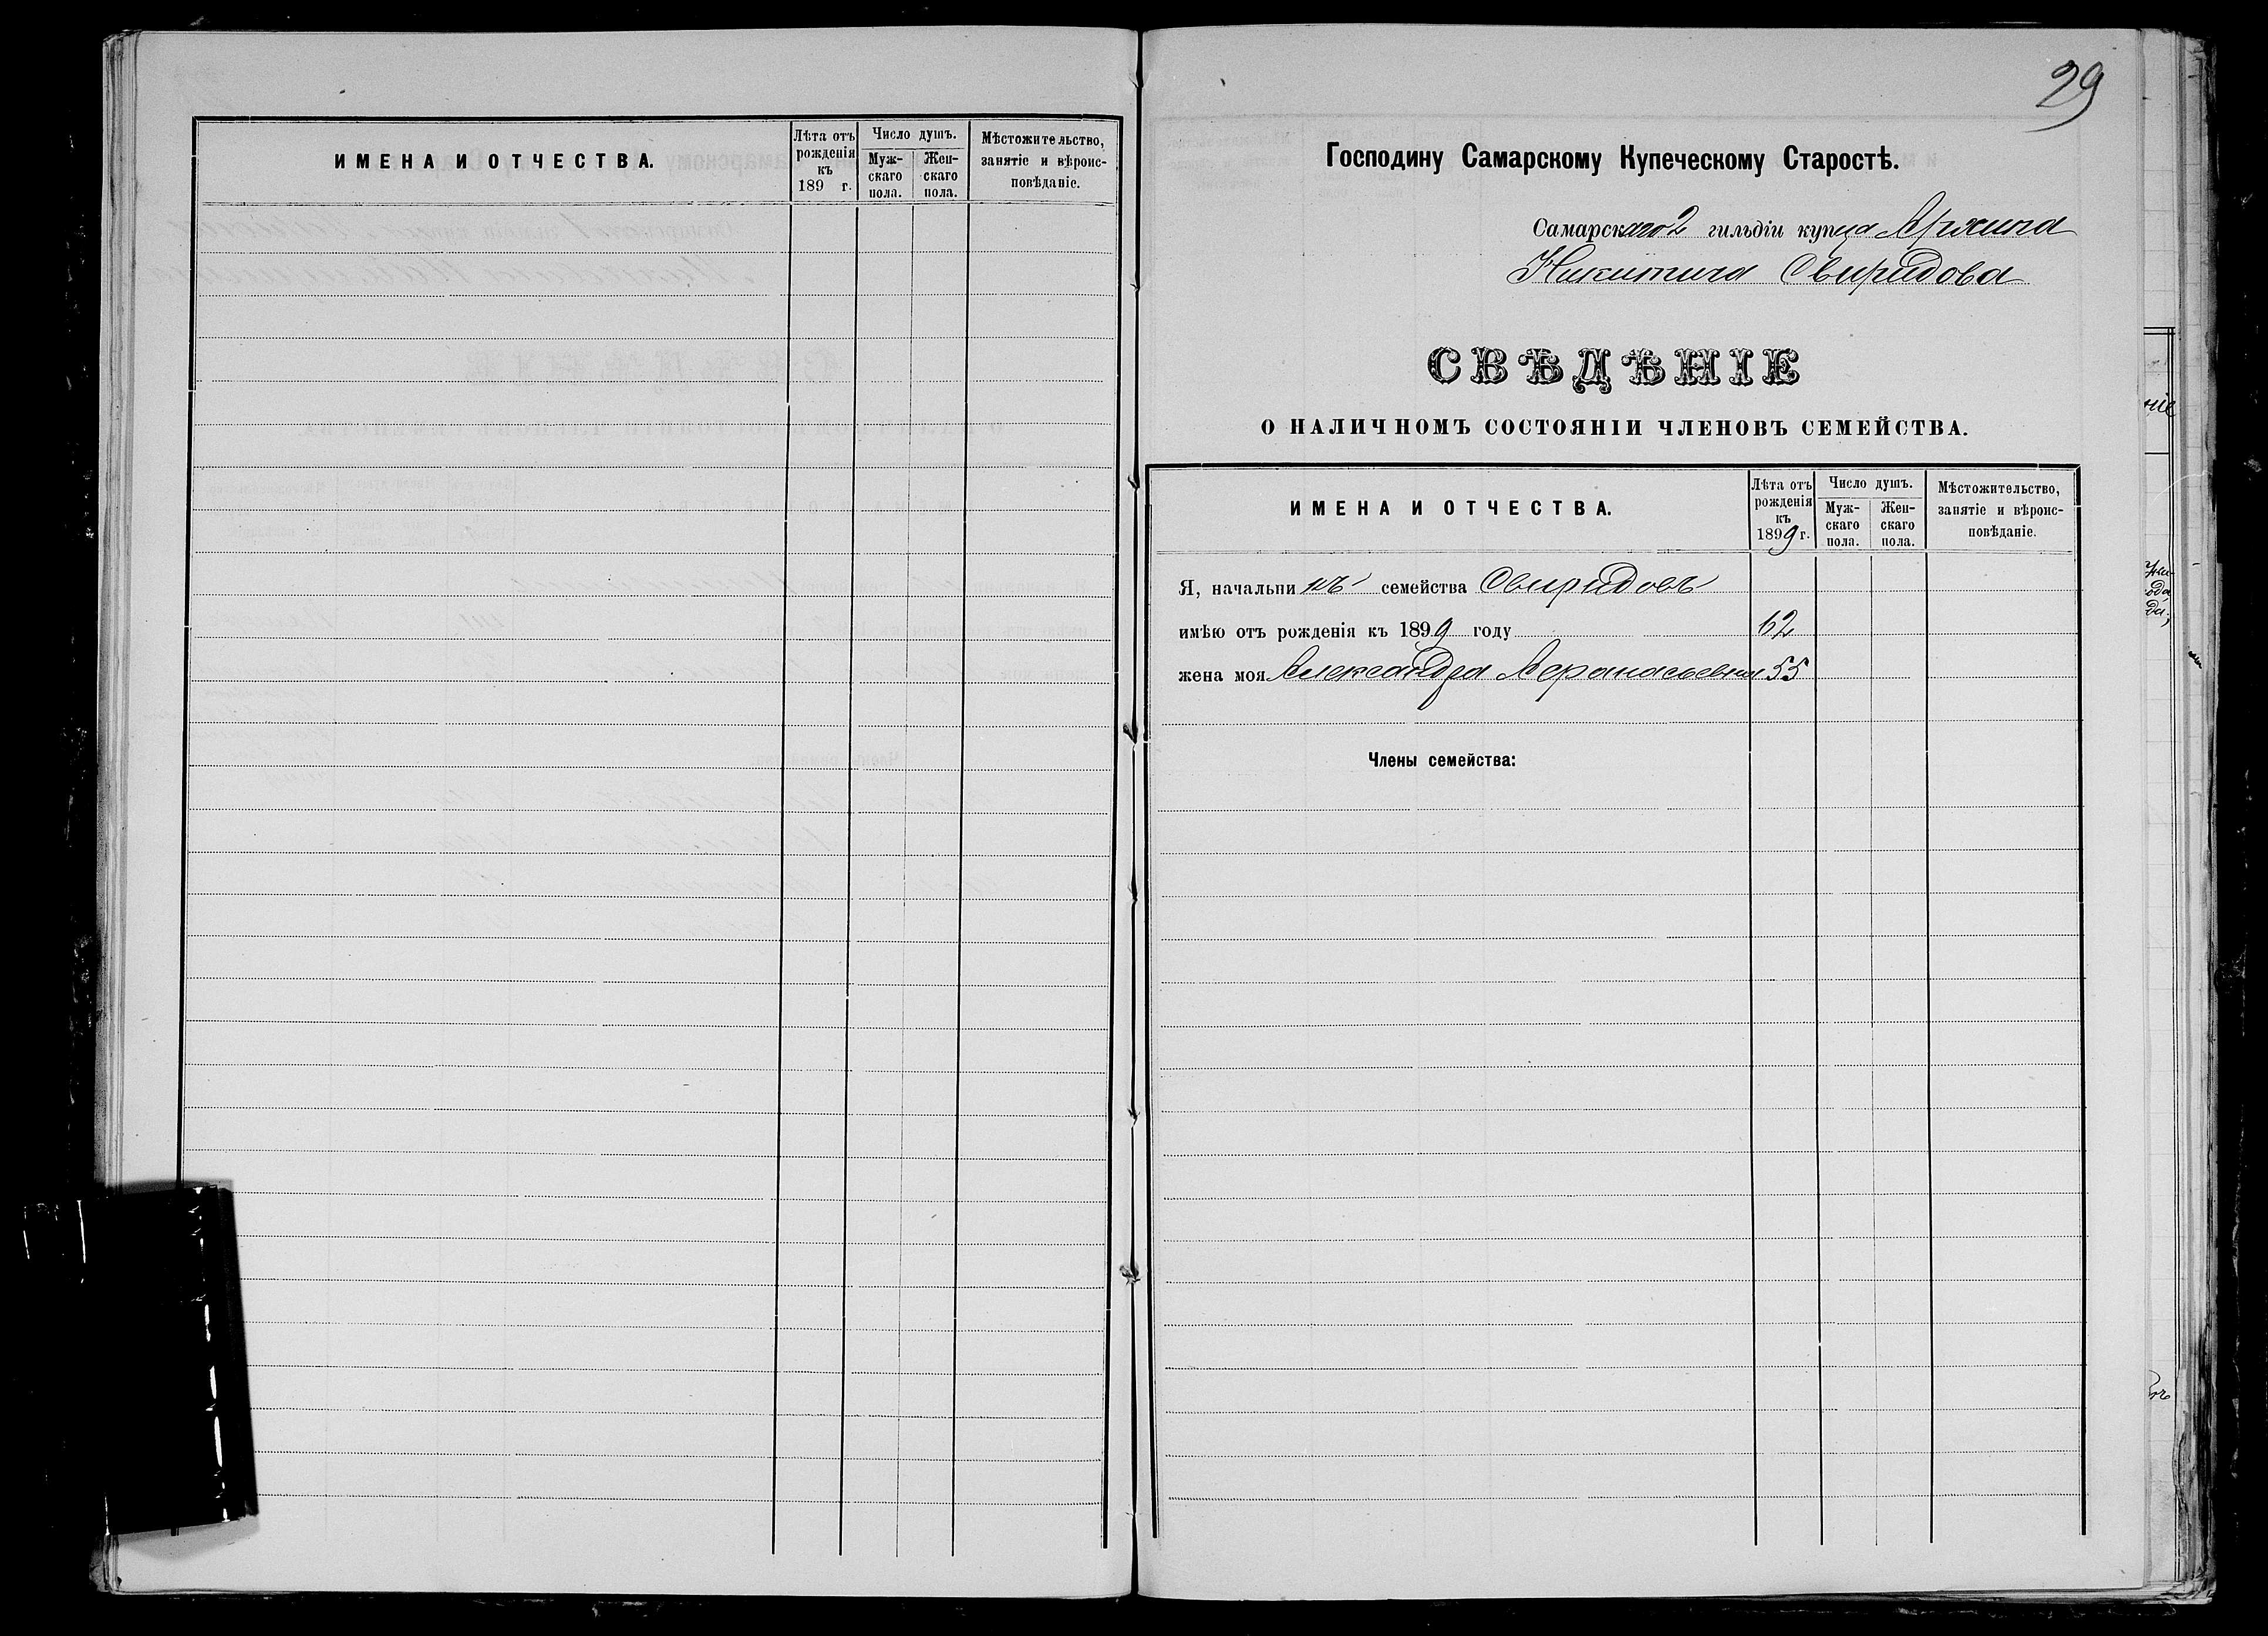 ИМЕНА И ОТЧЕСТВА.
Лѣта отъ рожденія къ 189 г.
Число душъ.
Мужскаго пола.
Женскаго пола.
Мѣстожительство, занятіе и вѣроисповѣданіе.
29
Господину Самарскому Купеческому Старостѣ.
Самарскаго 2 гильдіи купца Архипа
Никитича Свиридова
СВѢДѢНІЕ
О НАЛИЧНОМЪ СОСТОЯНІИ ЧЛЕНОВЪ СЕМЕЙСТВА.
ИМЕНА И ОТЧЕСТВА.
Лѣта отъ рожденія къ 1899 г.
Число душъ.
Мужскаго пола.
Женскаго пола.
Мѣстожительство, занятіе и вѣроисповѣданіе.
Я, начальникъ семейства Свиридовъ
имѣю отъ рожденія къ 1899 году 62
жена моя Александра Афанасьевна 55
Члены семейства: